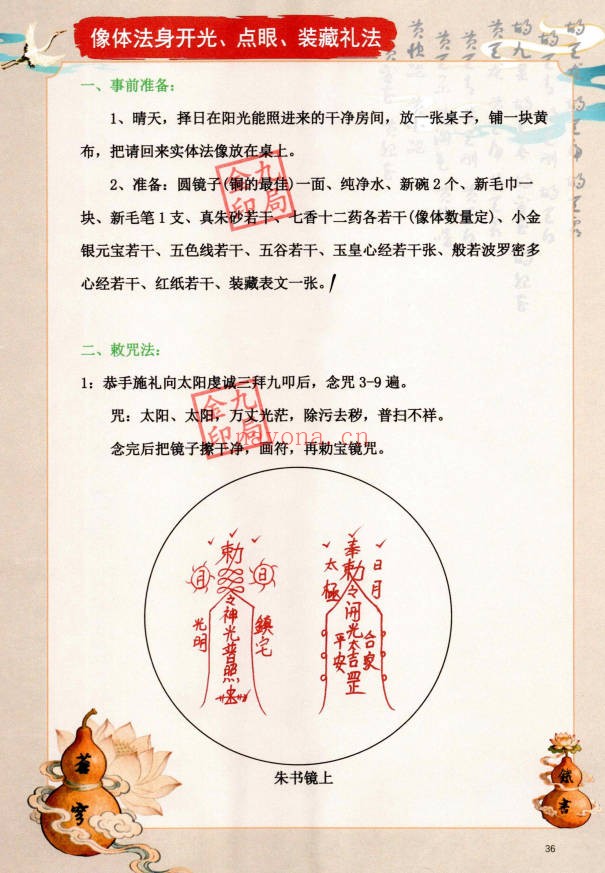 像体法身开光、点眼、装藏礼法
一、事前准备:
1、晴天，择日在阳光能照进来的干净房间，放一张桌子，铺一块黄
布，把请回来实体法像放在桌上。
2、准备：圆镜子(铜的最佳)一面、纯净水、新碗2个、新毛巾一
块、新毛笔1支、真朱砂若干、七香十二药各若干(像体数量定)、小金
银元宝若干、五色线若干、五谷若干、玉皇心经若干张、般若波罗密多
心经若干、红纸若干、装藏表文一张。
九局
金印
二、敕咒法:
1：恭手施礼向太阳虔诚三拜九叩后，念咒3-9遍。
咒：太阳、太阳，万丈光茫，除污去秽，普扫不祥。
念完后把镜子擦干净，画符，再勅宝镜咒。
九局
金印
nayona.cn
勅
令神光普照
光明
鎮宅
奉勅令開光大吉罡
太極
日月
平安
合家
朱书镜上
36